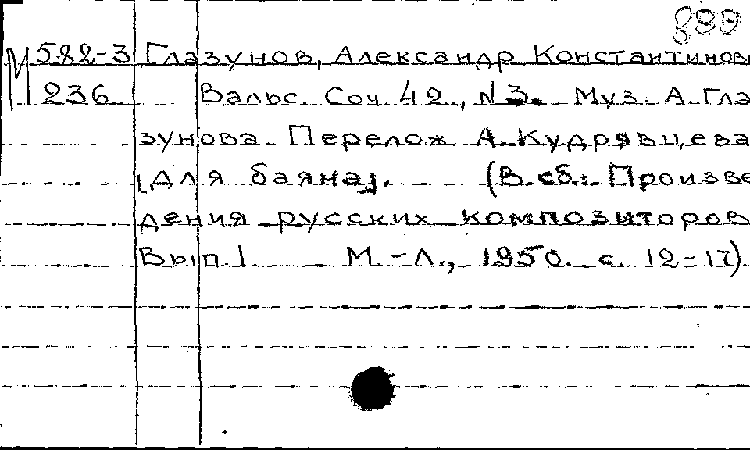 899
М 582-3 Глазунов, Александр Константинов
236 Вальс. Соч. 42, №3. Муз. А. Гла
зунова. Перелож А. Кудрявцева
[для баяна]. (В сб.: Произве
дения русских композиторов
Вып. 1. М.-Л., 1950. с. 12-17)